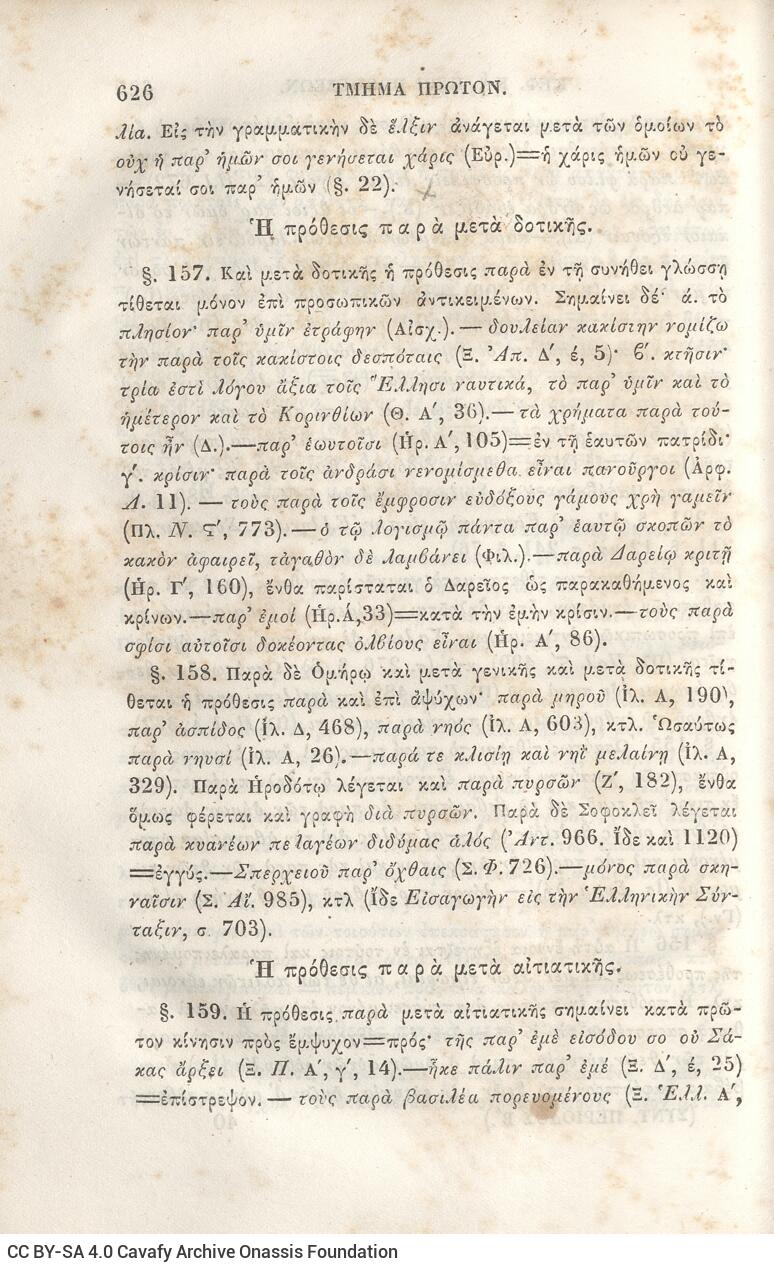 626 ΤΜΗΜΑ ΠΡΩΤΟΝ.
λία. Εἰς τὴν γραμματικὴν δὲ ἕλξιν ἀνάγεται μετὰ τῶν ὁμοίων τὸ
οὐχ ἡ παρ' ἡμῶν σοι γενήσεται χάρις (Εὐρ.)=ἡ χάρις ἡμῶν οὐ γε-
νήσεταί σοι παρ' ἡμῶν (§. 22).
Ἡ πρόθεσις παρὰ μετὰ δοτικῆς.
§. 157. Καὶ μετὰ δοτικῆς ἡ πρόθεσις παρὰ ἐν τῇ συνήθει γλώσσῃ
τίθεται μόνον ἐπὶ προσωπικῶν ἀντικειμένων. Σημαίνει δέ· ά. τὸ
πλησίον· παρ' ὑμῖν ἐτράφην (Αἰσχ.).— δουλείαν κακίστην νομίζω
τὴν παρὰ τοῖς κακίστοις δεσπόταις (Ξ. Ἀπ. Δ', έ, 5)· ϐ'. κτῆσιν·
τρία ἐστὶ λόγου ἄξια τοῖς Ἕλλησι ναυτικά, τὸ παρ' ὑμῖν καὶ τὸ
ἡμέτερον καὶ τὸ Κορινθίων (Θ. Α', 36).—τὰ χρήματα παρὰ τού-
τοις ἦν (Δ.).—παρ' ἑωυτοῖσι (Ἡρ. Α', 105)=ἐν τῇ ἑαυτῶν πατρίδι·
γ'. κρίσιν· παρὰ τοῖς ἀνδράσι νενομίσμεθα εἶναι πανοῦργοι (Ἀρφ.
Λ. 11). — τοὺς παρὰ τοῖς ἔμφροσιν εὐδόξους γάμους χρὴ γαμεῖν
(Πλ. Ν. Ϛ', 773).—ὁ τῷ λογισμῷ πάντα παρ' ἑαυτῷ σκοπῶν τὸ
κακὸν ἀφαιρεῖ, τἀγαθὸν δὲ λαμβάνει (Φιλ.).—παρὰ Δαρείῳ κριτῇ
(Ἡρ. Γ', 160), ἔνθα παρίσταται ὁ Δαρεῖος ὡς παρακαθήμενος καὶ
κρίνων.—παρ' ἐμοί (Ἡρ.Ά,33)=κατὰ τὴν ἐμὴν κρίσιν.—τοὺς παρὰ
σφίσι αὐτοῖσι δοκέοντας ὀλβίους εἶναι (Ἡρ. Α', 86).
§. 158. Παρὰ δὲ Ὁμήρῳ καὶ μετὰ γενικῆς καὶ μετὰ δοτικῆς τί-
θεται ἡ πρόθεσις παρὰ καὶ ἐπὶ ἀψύχων· παρὰ μηροῦ (Ἰλ. Α, 190),
παρ' ἀσπίδος (Ἰλ. Δ, 468), παρὰ νηός (Ἰλ. Α, 603), κτλ. Ὡσαύτως
παρὰ νηυσί (Ἰλ. Α, 26).—παρά τε κλισίῃ καὶ νηῒ μελαίνῃ (Ἰλ. Α,
329). Παρὰ Ἡροδότῳ λέγεται καὶ παρὰ πυρσῶν (Ζ', 182), ἔνθα
ὅμως φέρεται καὶ γραφὴ διὰ πυρσῶν. Παρὰ δὲ Σοφοκλεῖ λέγεται
παρὰ κυανέων πελαγέων διδύμας ἁλός (Ἀντ. 966. Ἴδε καὶ 1120)
=ἐγγύς.—Σπερχειοῦ παρ' ὄχθαις (Σ. Φ. 726).—μόνος παρὰ σκη-
ναῖσιν (Σ. Αἴ. 985), κτλ (Ἴδε Εἰσαγωγὴν εἰς τὴν Ἑλληνικὴν Σύν-
ταξιν, σ. 703).
Ἡ πρόθεσις παρὰ μετὰ αἰτιατικῆς.
§. 159. Ἡ πρόθεσις παρὰ μετὰ αἰτιατικῆς σημαίνει κατὰ πρῶ-
τον κίνησιν πρὸς ἔμψυχον=πρός· τῆς παρ' ἐμὲ εἰσόδου σο οὐ Σά-
κας ἄρξει (Ξ. Π. Α', γ', 14).—ἧκε πάλιν παρ' ἐμέ (Ξ. Δ', έ, 25)
=ἐπίστρεψον.— τοὺς παρὰ βασιλέα πορευομένους (Ξ. Ἑλλ. Α',
CC BY-SA 4.0 Cavafy Archive Onassis Foundation